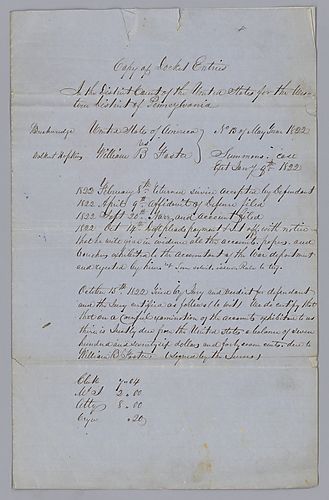 Copy of Docket Entries
In the District Court of the United States for the Wes-
tern District of Pennsylvania
Breckenridge United States of America No 13 of May Term 1822
vs
Walker & Hopkins William B Foster Summons case
Ext Jany 9th 1822
1822 February 8th Exterior service accepted by Defendant
1822 April 9th affidavit of Defence filed
1822 Sept 30th Narr, and account filed
1822 Oct 14th Deft pleads payment & set off with notice
that he will give in evidence all the accounts, papers, and
vouchers exhibited to the accountant of the War department
and rejected by him
October 15th 1822 Tried by Jury and verdict for defendant
and the Jury certified as follows (to wit) We do certify that
that on a careful examination of the accounts exhibited to us
there is justly due from the United States a balance of seven
hundred and seventy six dollars and forty seven cents, due to
William B Foster (Signed by the Jurors)
Clk 7.04
2.00
Atty 8.00
Cryer .20